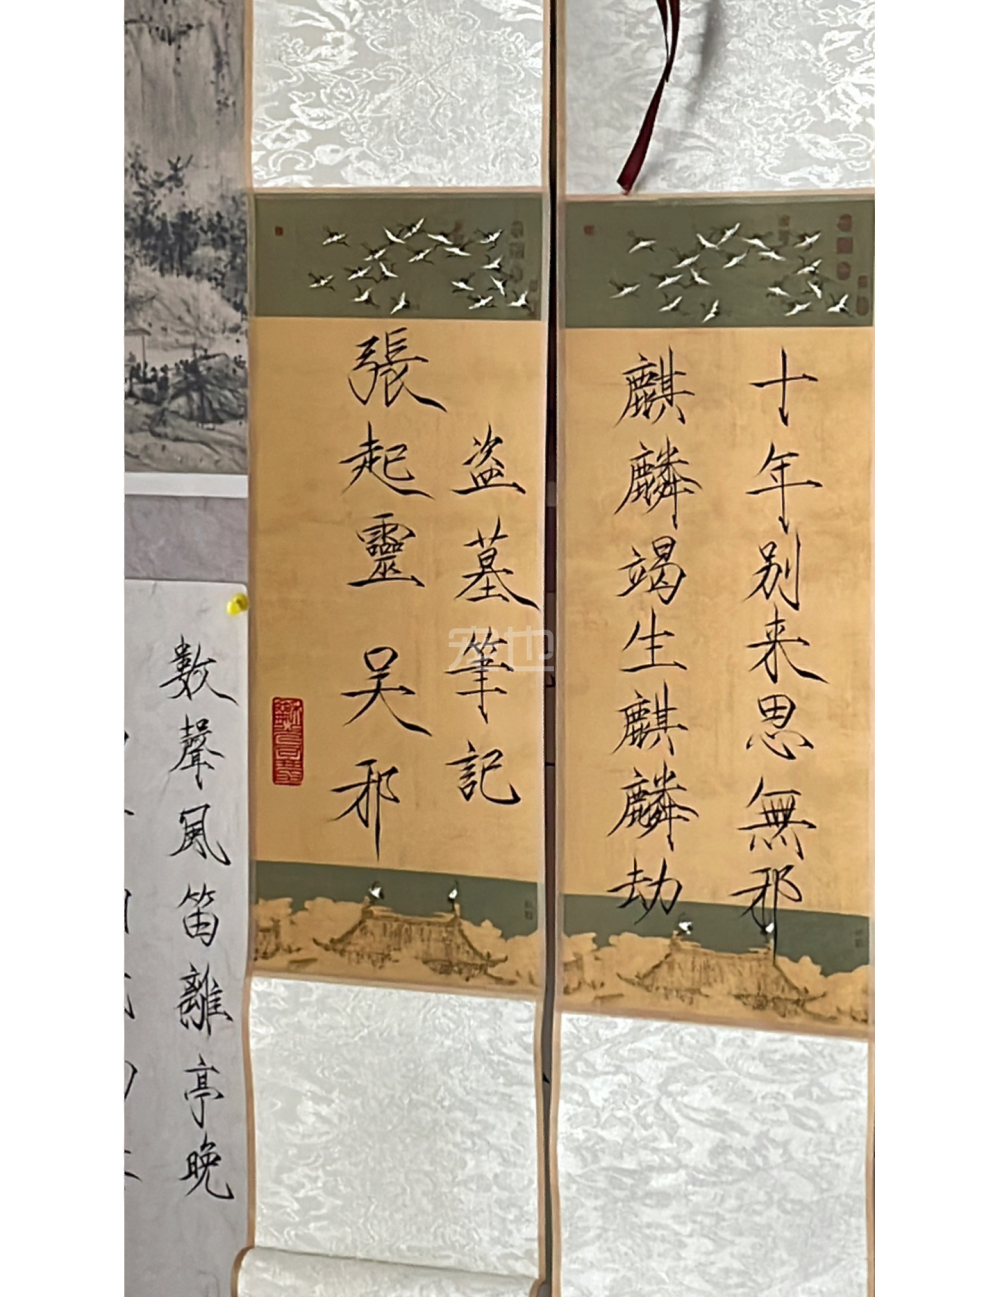 十年别来思無邪
麒麟竭生麒麟劫
盗墓筆記
張起靈 吴邪
數聲風笛離亭晚